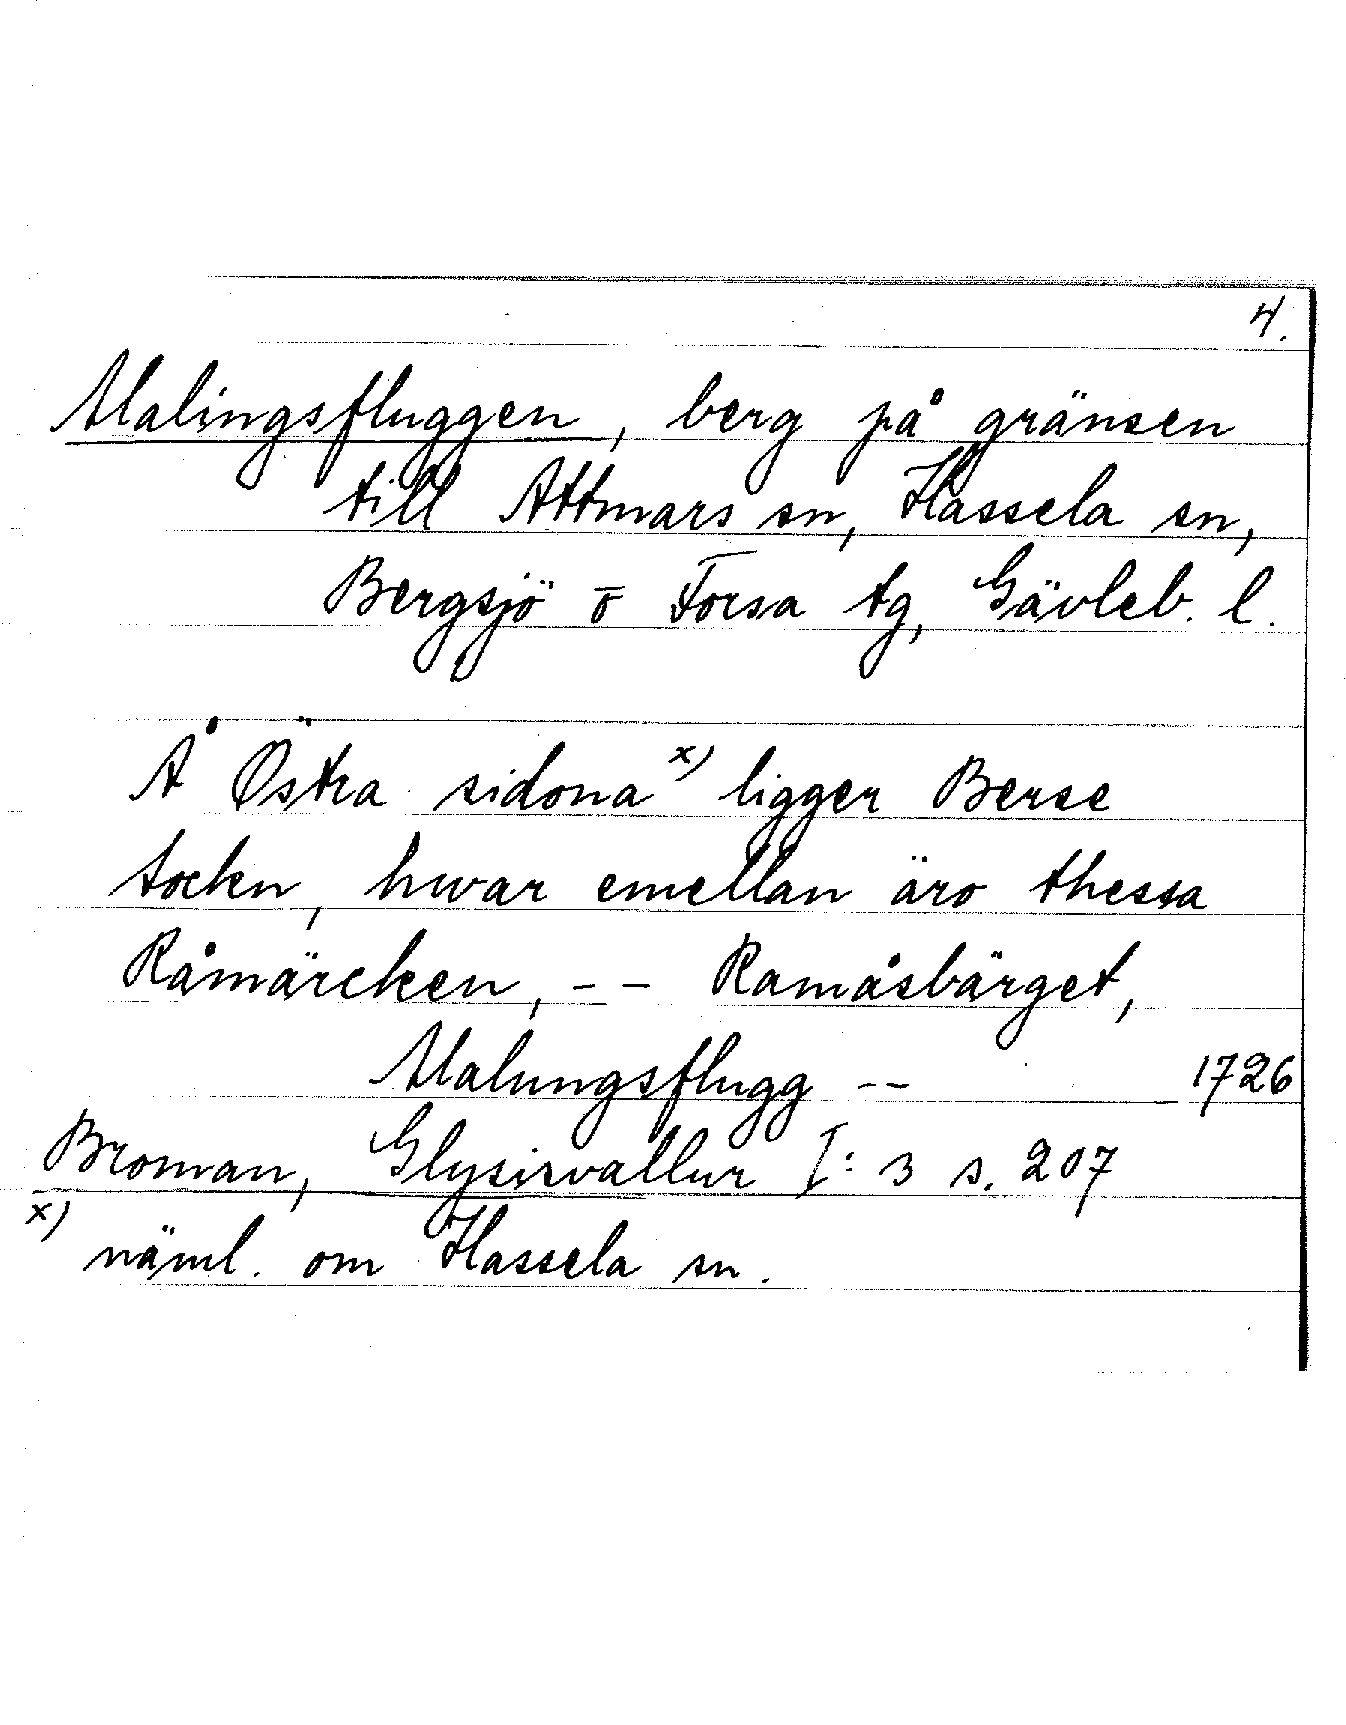 4.
Malingsfluggen, berg på gränsen
till Attmars sn, Hassela sn,
Bergsjö o Forsa tg, Gävleb. l.
Å Östra sidona x) ligger Berse
sockn, hwar emellan äro thessa
Råmärcken, -- Ramåsbärget,
Malungsflugg -- 1726
Broman, Glysisvallur I: 3 s. 207
x) näml. om Hassela sn.